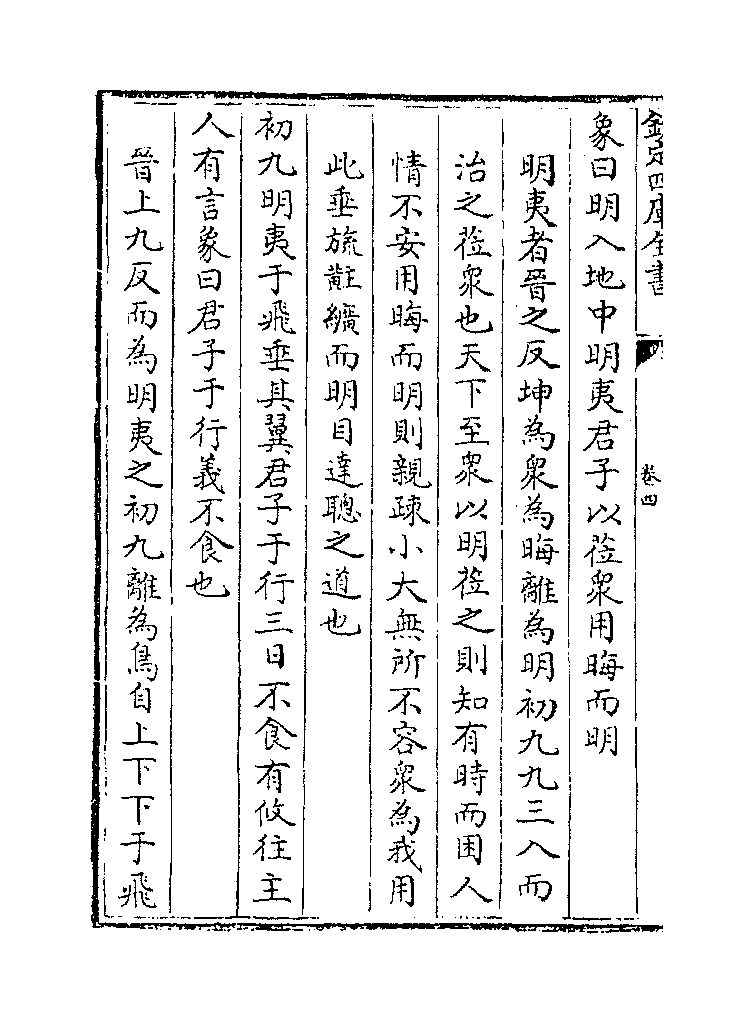 欽定四庫全書
卷四
象曰明入地中明夷君子以莅衆用晦而明
明夷者晉之反坤為衆為晦離為明初九九三入而
治之莅衆也天下至衆以明莅之則知有時而困人
情不安用晦而明則親疎小大無所不容衆為我用
此垂旒黈纊而明目達聰之道也
初九明夷于飛垂其翼君子于行三日不食有攸往主
人有言象曰君子于行義不食也
晉上九反而為明夷之初九離為鳥自上下下于飛